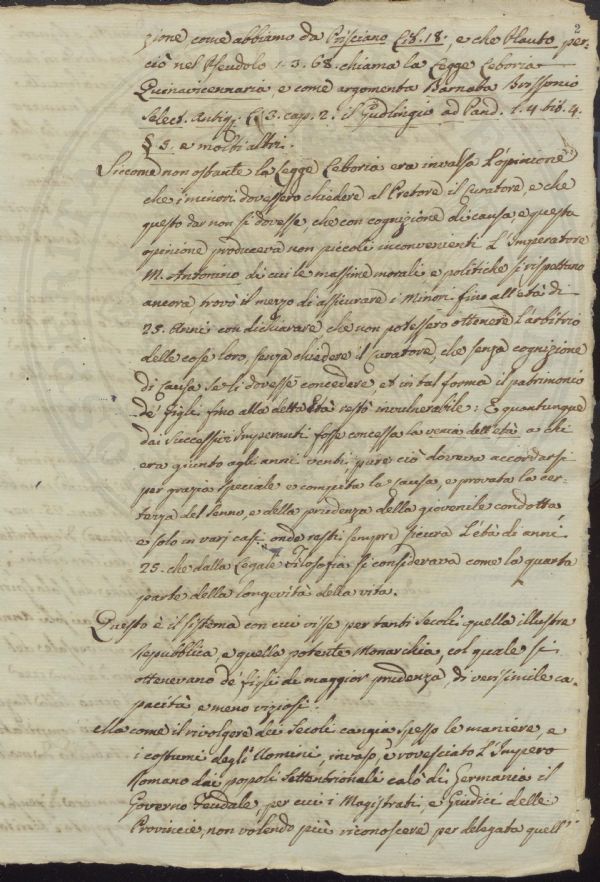 2
zione come abbiamo da Prisciano Lib. 18., e che Plauto per-
ciò nel Pseudolo 1. 3. 68. chiama la Legge Letoria
Quinavicennaria e come argomenta Barnaba Brissonio
Select. Antiq. L. 3. cap. 2. il Gudlingio ad Pand. l. 4. tit. 4.
§ 5. e molti altri.
Siccome non ostante la Legge Letoria era invalsa l'opinione
che i minori dovessero chiedere al Pretore il Curatore, e che
questo dar non si dovesse, che con cognizione di causa, e questa
opinione produceva non piccoli inconvenienti L'Imperatore
M. Antonino di cui le massime morali e politiche si rispettano
ancora, trovò il mezzo di assicurare i Minori fino all'età di
25. Anni con dichiarare che non potessero ottenere l'arbitrio
delle cose loro, senza chiedere il Curatore, che senza cognizione
di causa se li dovesse concedere et in tal forma il patrimonio
de' Figli fino alla detta Età restò invulnerabile: E quantunque
dai successivi Imperanti fosse concessa la venia dell'età a chi
era giunto agli anni venti, pure ciò doveva accordarsi
per grazia speciale e compita la causa, e provata la cer-
tezza del senno, e della prudenza della giovenile condotta,
e solo in varj casi, onde restò sempre sicura l'età di anni
25. che dalla Legale Filosofia si considerava come la quarta
parte della longevità della vita.
Questo è il sistema con cui visse per tanti secoli quella illustre
Repubblica, e quella potente Monarchia, col quale si
ottenevano de' figli di maggior prudenza, di verisimile ca-
pacità e meno viziosi.
Ma come il rivolgere dei secoli cangia spesso le maniere, e
i costumi degli Uomini, invaso, e rovesciato L'Impero
Romano dai popoli settentrionali calò di Germania il
Governo Feudale, per cui i Magistrati, e Giudici delle
Provincie, non volendo più riconoscere per delegata quell'